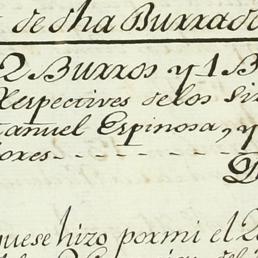 de dha Burrado
2 Burros y 1 B
Respectives de los Si
anuel Espinosa, y
ores
quese hizo pormi el 2